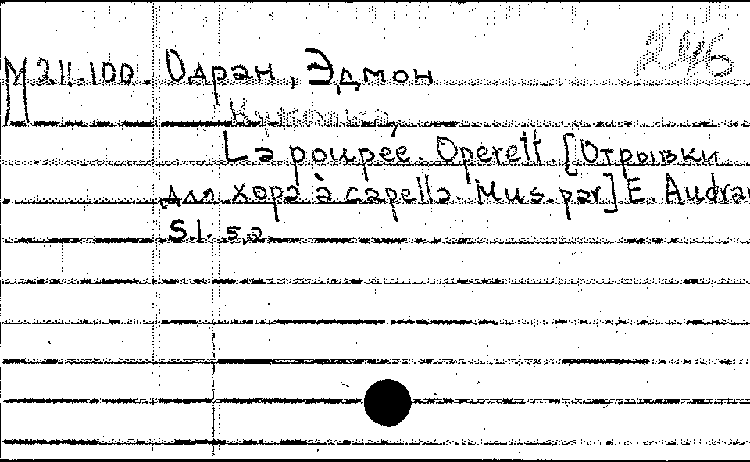 246
М 211.100. Одран, Эдмон
Куколка,
La poupée. Operett. [Отрывки
для хора à capella. Mus. par] E. Audran
S.l. s.a